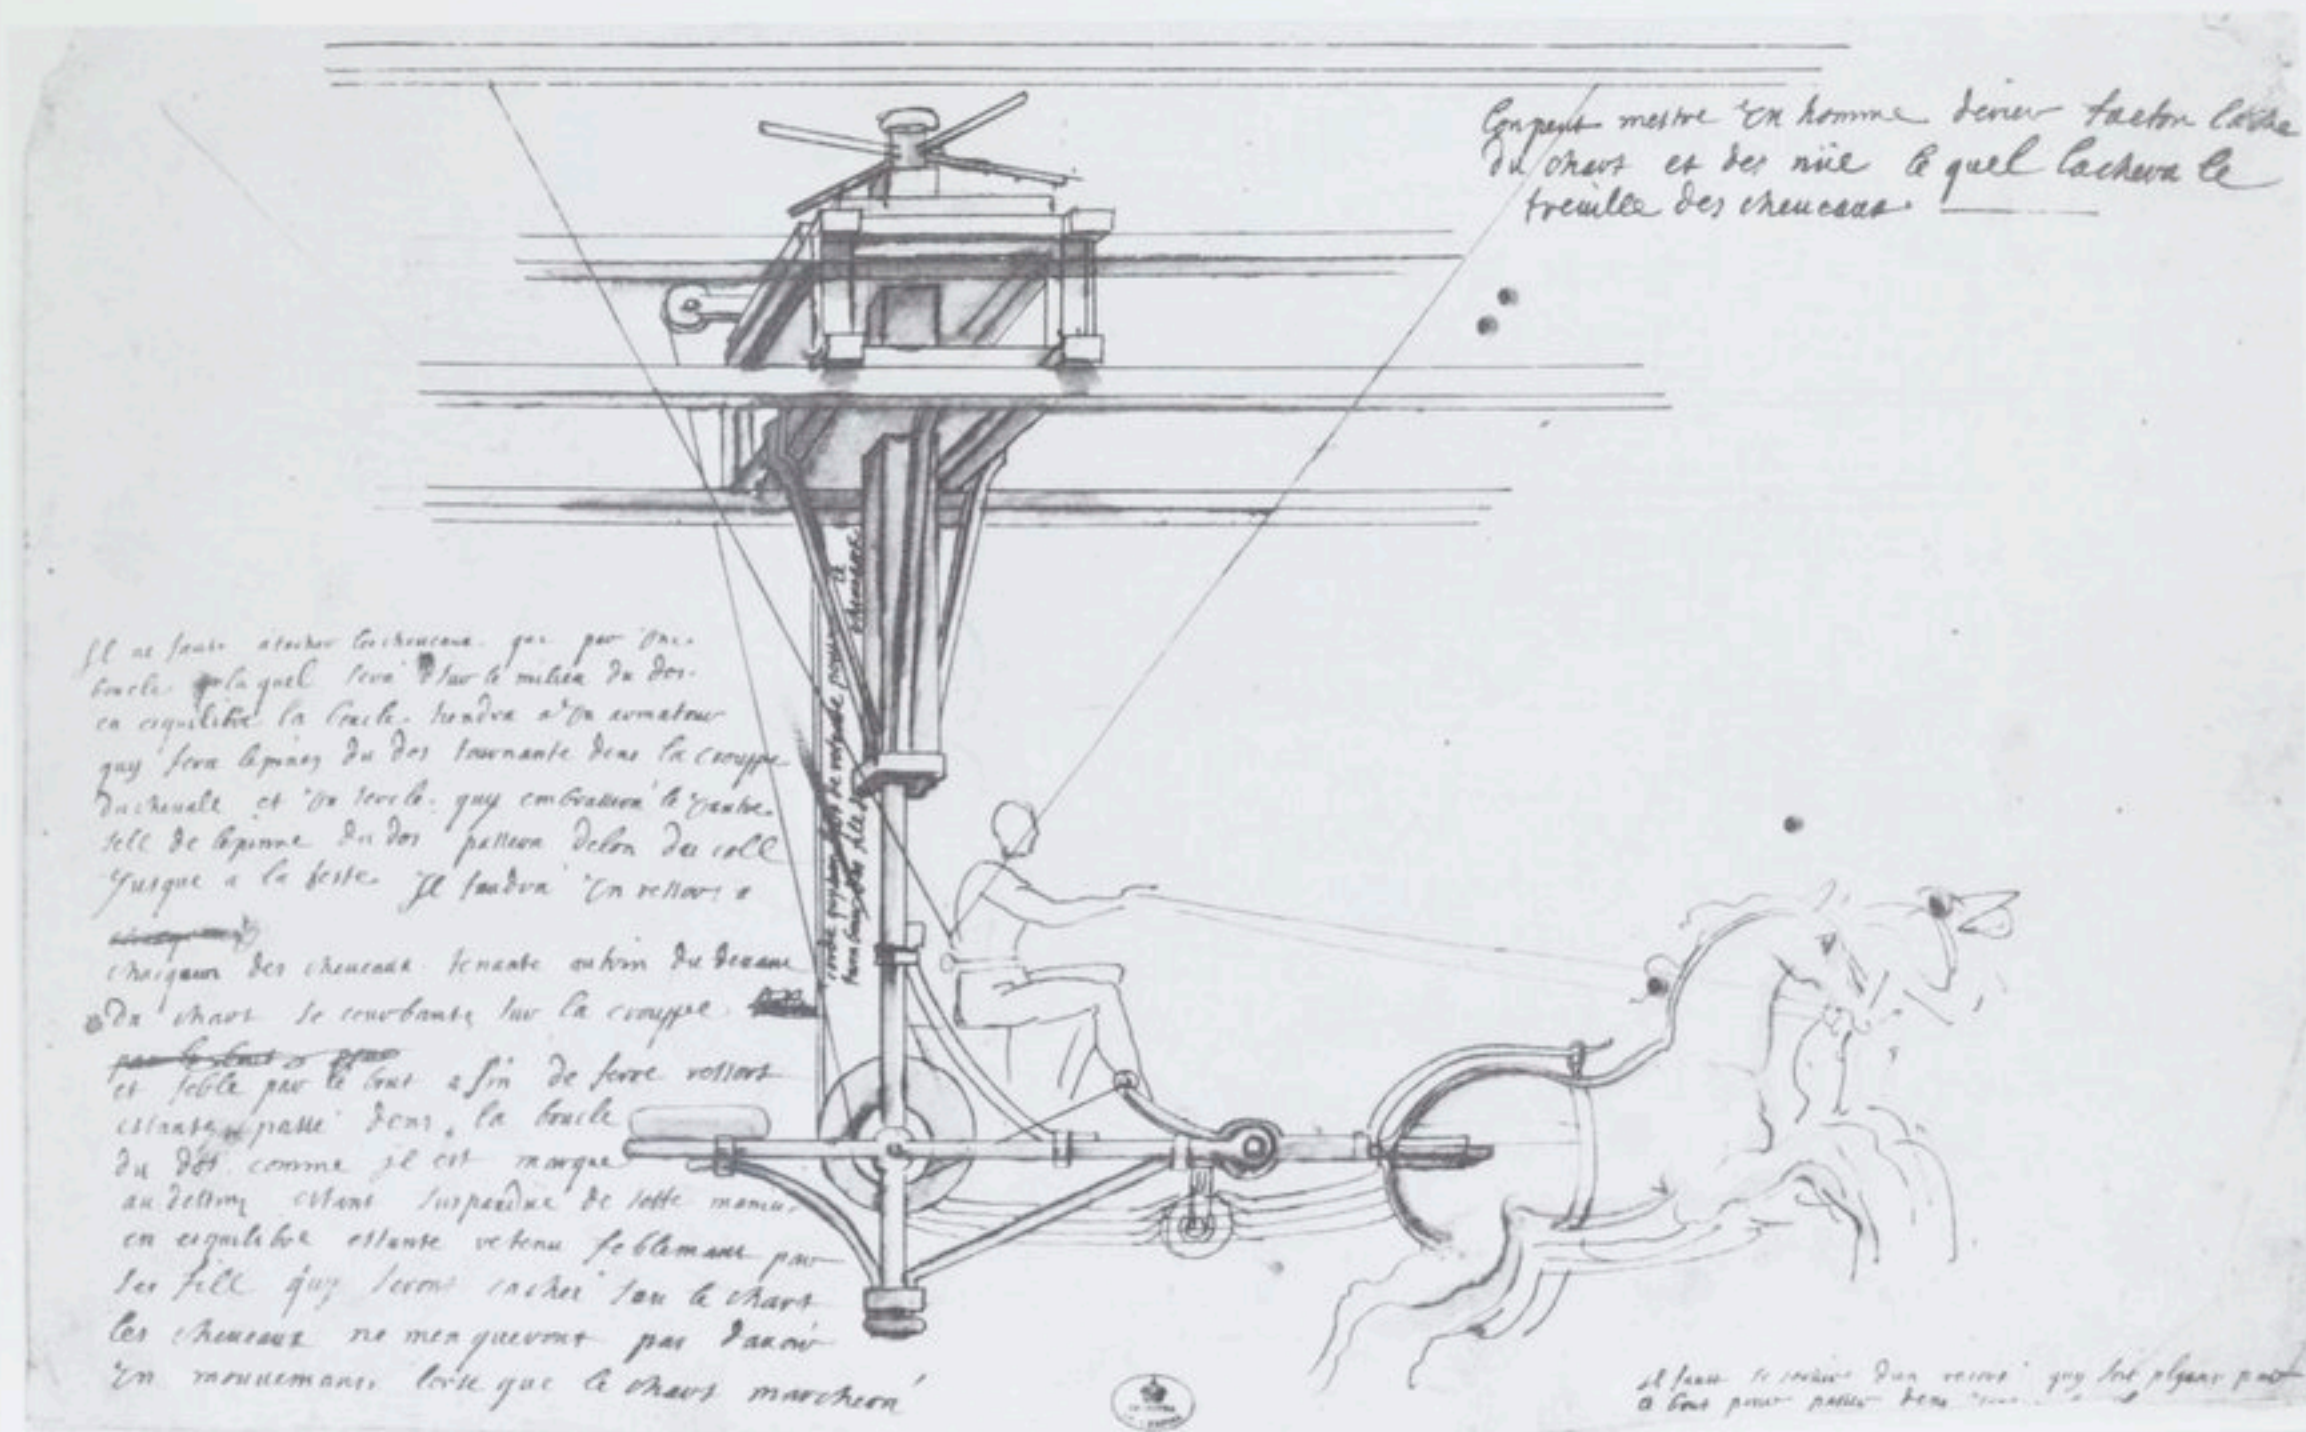 Lon peut mestre un homme derier faeton
du chart et des nüe le quel lachera le
treuille des cheueaux.
Il ne faut atacher les cheueaux que par une
boucle laquel sera sur le milieu du dos
en equilibre la boucle tiendra a un armature
quy sera lepines du dos tournante dens la crouppe
du chevalle et un sercle quy embrassera le vantre
sell de lepinne du dos passera delon du coll
jusque a la teste. Il faudra un ressort a
chacqun des cheueaux tenante du devant
du chart se courbante sur la crouppe
et feble par le bout afin de ferre ressort
estante passé dens la boucle
du dos comme il est marque
au dessins estant suspandue de sette
en equilibre estante retenu feblemant par
des fill quy seront cachéi sou le chart
les cheueaux ne menqueront pas dauoir
un mouuemans lorse que le chart marchera
corde quy de
Il faut se servir dun resort quy soit plyant par
bout pour passer dens